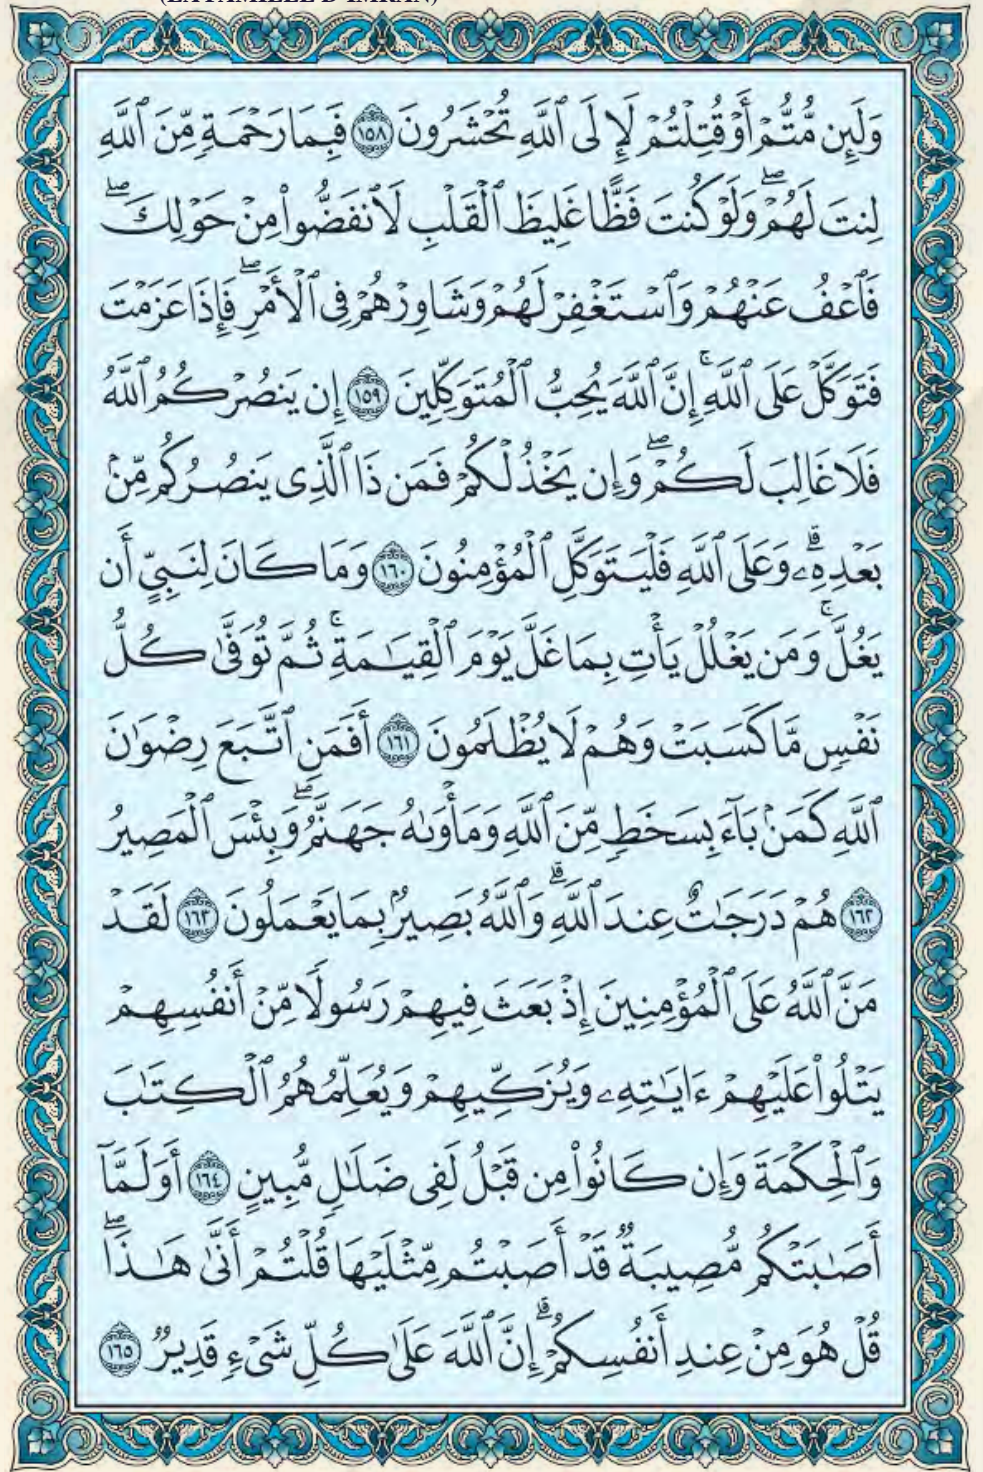 (LA FAMILLE D'IMRAN)
وَلَئِن مُّتُّمْ أَوْ قُتِلْتُمْ لَإِلَى ٱللَّهِ تُحْشَرُونَ ١٥٨ فَبِمَا رَحْمَةٍ مِّنَ ٱللَّهِ
لِنتَ لَهُمْ ۖ وَلَوْ كُنتَ فَظًّا غَلِيظَ ٱلْقَلْبِ لَٱنفَضُّوا۟ مِنْ حَوْلِكَ ۖ
فَٱعْفُ عَنْهُمْ وَٱسْتَغْفِرْ لَهُمْ وَشَاوِرْهُمْ فِى ٱلْأَمْرِ ۖ فَإِذَا عَزَمْتَ
فَتَوَكَّلْ عَلَى ٱللَّهِ ۚ إِنَّ ٱللَّهَ يُحِبُّ ٱلْمُتَوَكِّلِينَ ١٥٩ إِن يَنصُرْكُمُ ٱللَّهُ
فَلَا غَالِبَ لَكُمْ ۖ وَإِن يَخْذُلْكُمْ فَمَن ذَا ٱلَّذِى يَنصُرُكُم مِّنۢ
بَعْدِهِۦ ۗ وَعَلَى ٱللَّهِ فَلْيَتَوَكَّلِ ٱلْمُؤْمِنُونَ ١٦٠ وَمَا كَانَ لِنَبِىٍّ أَن
يَغُلَّ ۚ وَمَن يَغْلُلْ يَأْتِ بِمَا غَلَّ يَوْمَ ٱلْقِيَـٰمَةِ ۚ ثُمَّ تُوَفَّىٰ كُلُّ
نَفْسٍ مَّا كَسَبَتْ وَهُمْ لَا يُظْلَمُونَ ١٦١ أَفَمَنِ ٱتَّبَعَ رِضْوَٰنَ
ٱللَّهِ كَمَنۢ بَآءَ بِسَخَطٍ مِّنَ ٱللَّهِ وَمَأْوَىٰهُ جَهَنَّمُ ۖ وَبِئْسَ ٱلْمَصِيرُ
١٦٢ هُمْ دَرَجَـٰتٌ عِندَ ٱللَّهِ ۗ وَٱللَّهُ بَصِيرٌۢ بِمَا يَعْمَلُونَ ١٦٣ لَقَدْ
مَنَّ ٱللَّهُ عَلَى ٱلْمُؤْمِنِينَ إِذْ بَعَثَ فِيهِمْ رَسُولًا مِّنْ أَنفُسِهِمْ
يَتْلُوا۟ عَلَيْهِمْ ءَايَـٰتِهِۦ وَيُزَكِّيهِمْ وَيُعَلِّمُهُمُ ٱلْكِتَـٰبَ
وَٱلْحِكْمَةَ وَإِن كَانُوا۟ مِن قَبْلُ لَفِى ضَلَـٰلٍ مُّبِينٍ ١٦٤ أَوَلَمَّآ
أَصَـٰبَتْكُم مُّصِيبَةٌ قَدْ أَصَبْتُم مِّثْلَيْهَا قُلْتُمْ أَنَّىٰ هَـٰذَا ۖ
قُلْ هُوَ مِنْ عِندِ أَنفُسِكُمْ ۗ إِنَّ ٱللَّهَ عَلَىٰ كُلِّ شَىْءٍ قَدِيرٌ ١٦٥